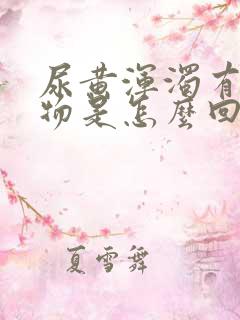 尿黄渾濁有
物是怎麼回
夏雪舞